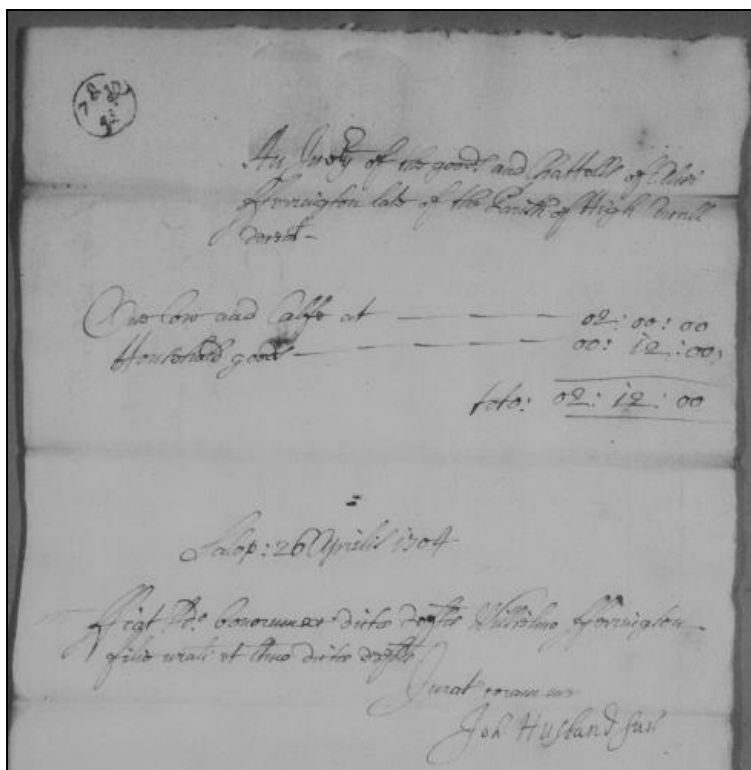 An Inv'ty of the goods and Chattells of Alice
fferrington late of the Parish of High Ercall
deced
One Cow and Calfe at 02 : 00 : 00
Household goods 00 : 12 : 00
toto: 02 : 12 : 00
Salop: 26 Aprilis 1704
ffiat bonorum dictæ Willielmo fferrington
filio nrali et dictæ
Jurat coram me
Joh Husband Sur